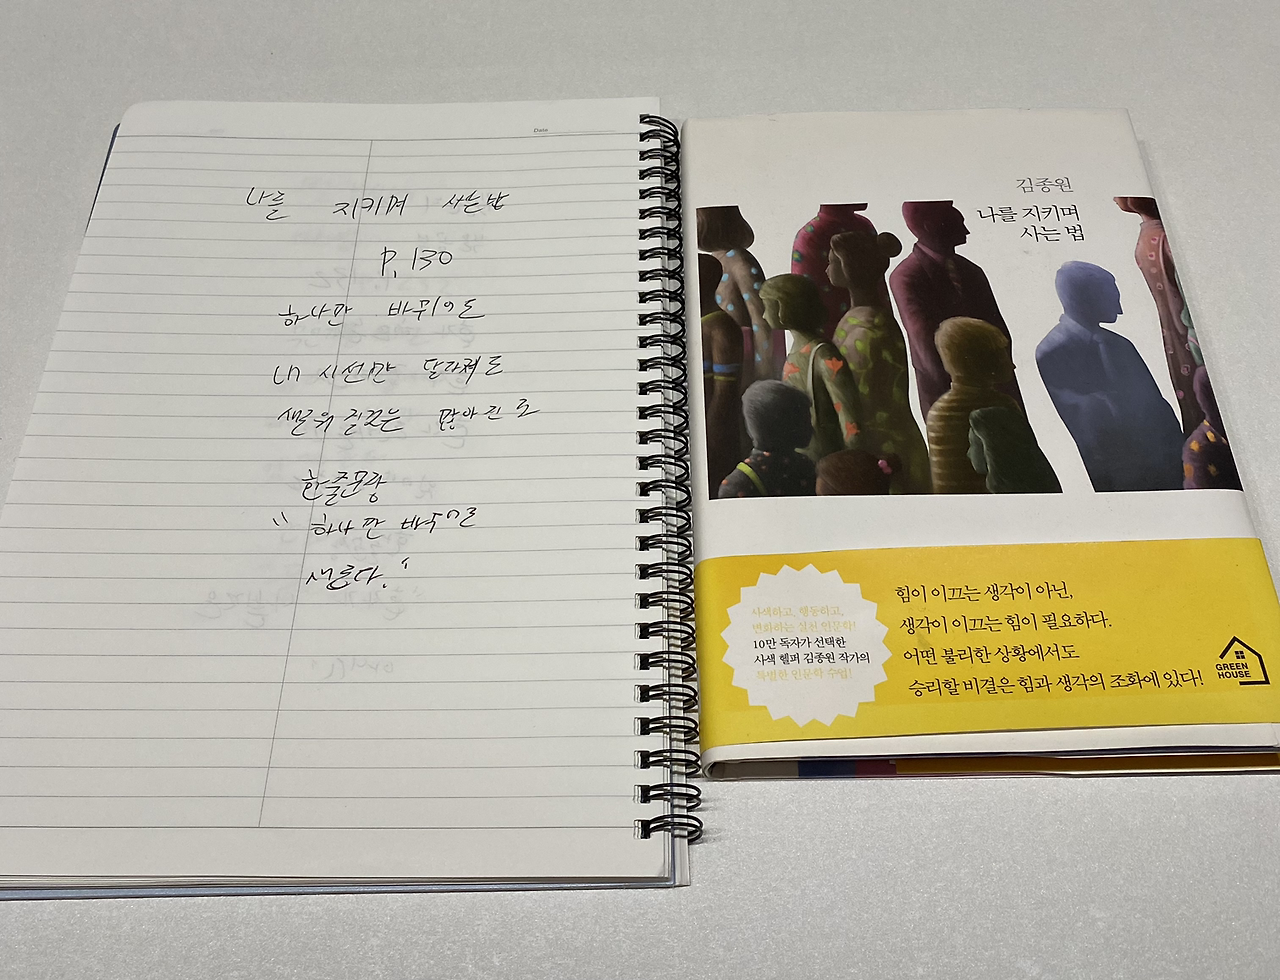 Date
나를 지키며 사는법
P. 130
하나만 바뀌어도
내 시선만 달라져도
새로워질것은 많아진다
한줄문장
"하나만 바꿔도
새롭다."
김종원
나를 지키며
사는 법
사색하고, 행동하고,
변화하는 실천 인문학!
10만 독자가 선택한
사색 헬퍼 김종원 작가의
특별한 인문학 수업!
힘이 이끄는 생각이 아닌,
생각이 이끄는 힘이 필요하다.
어떤 불리한 상황에서도
승리할 비결은 힘과 생각의 조화에 있다!
GREEN
HOUSE